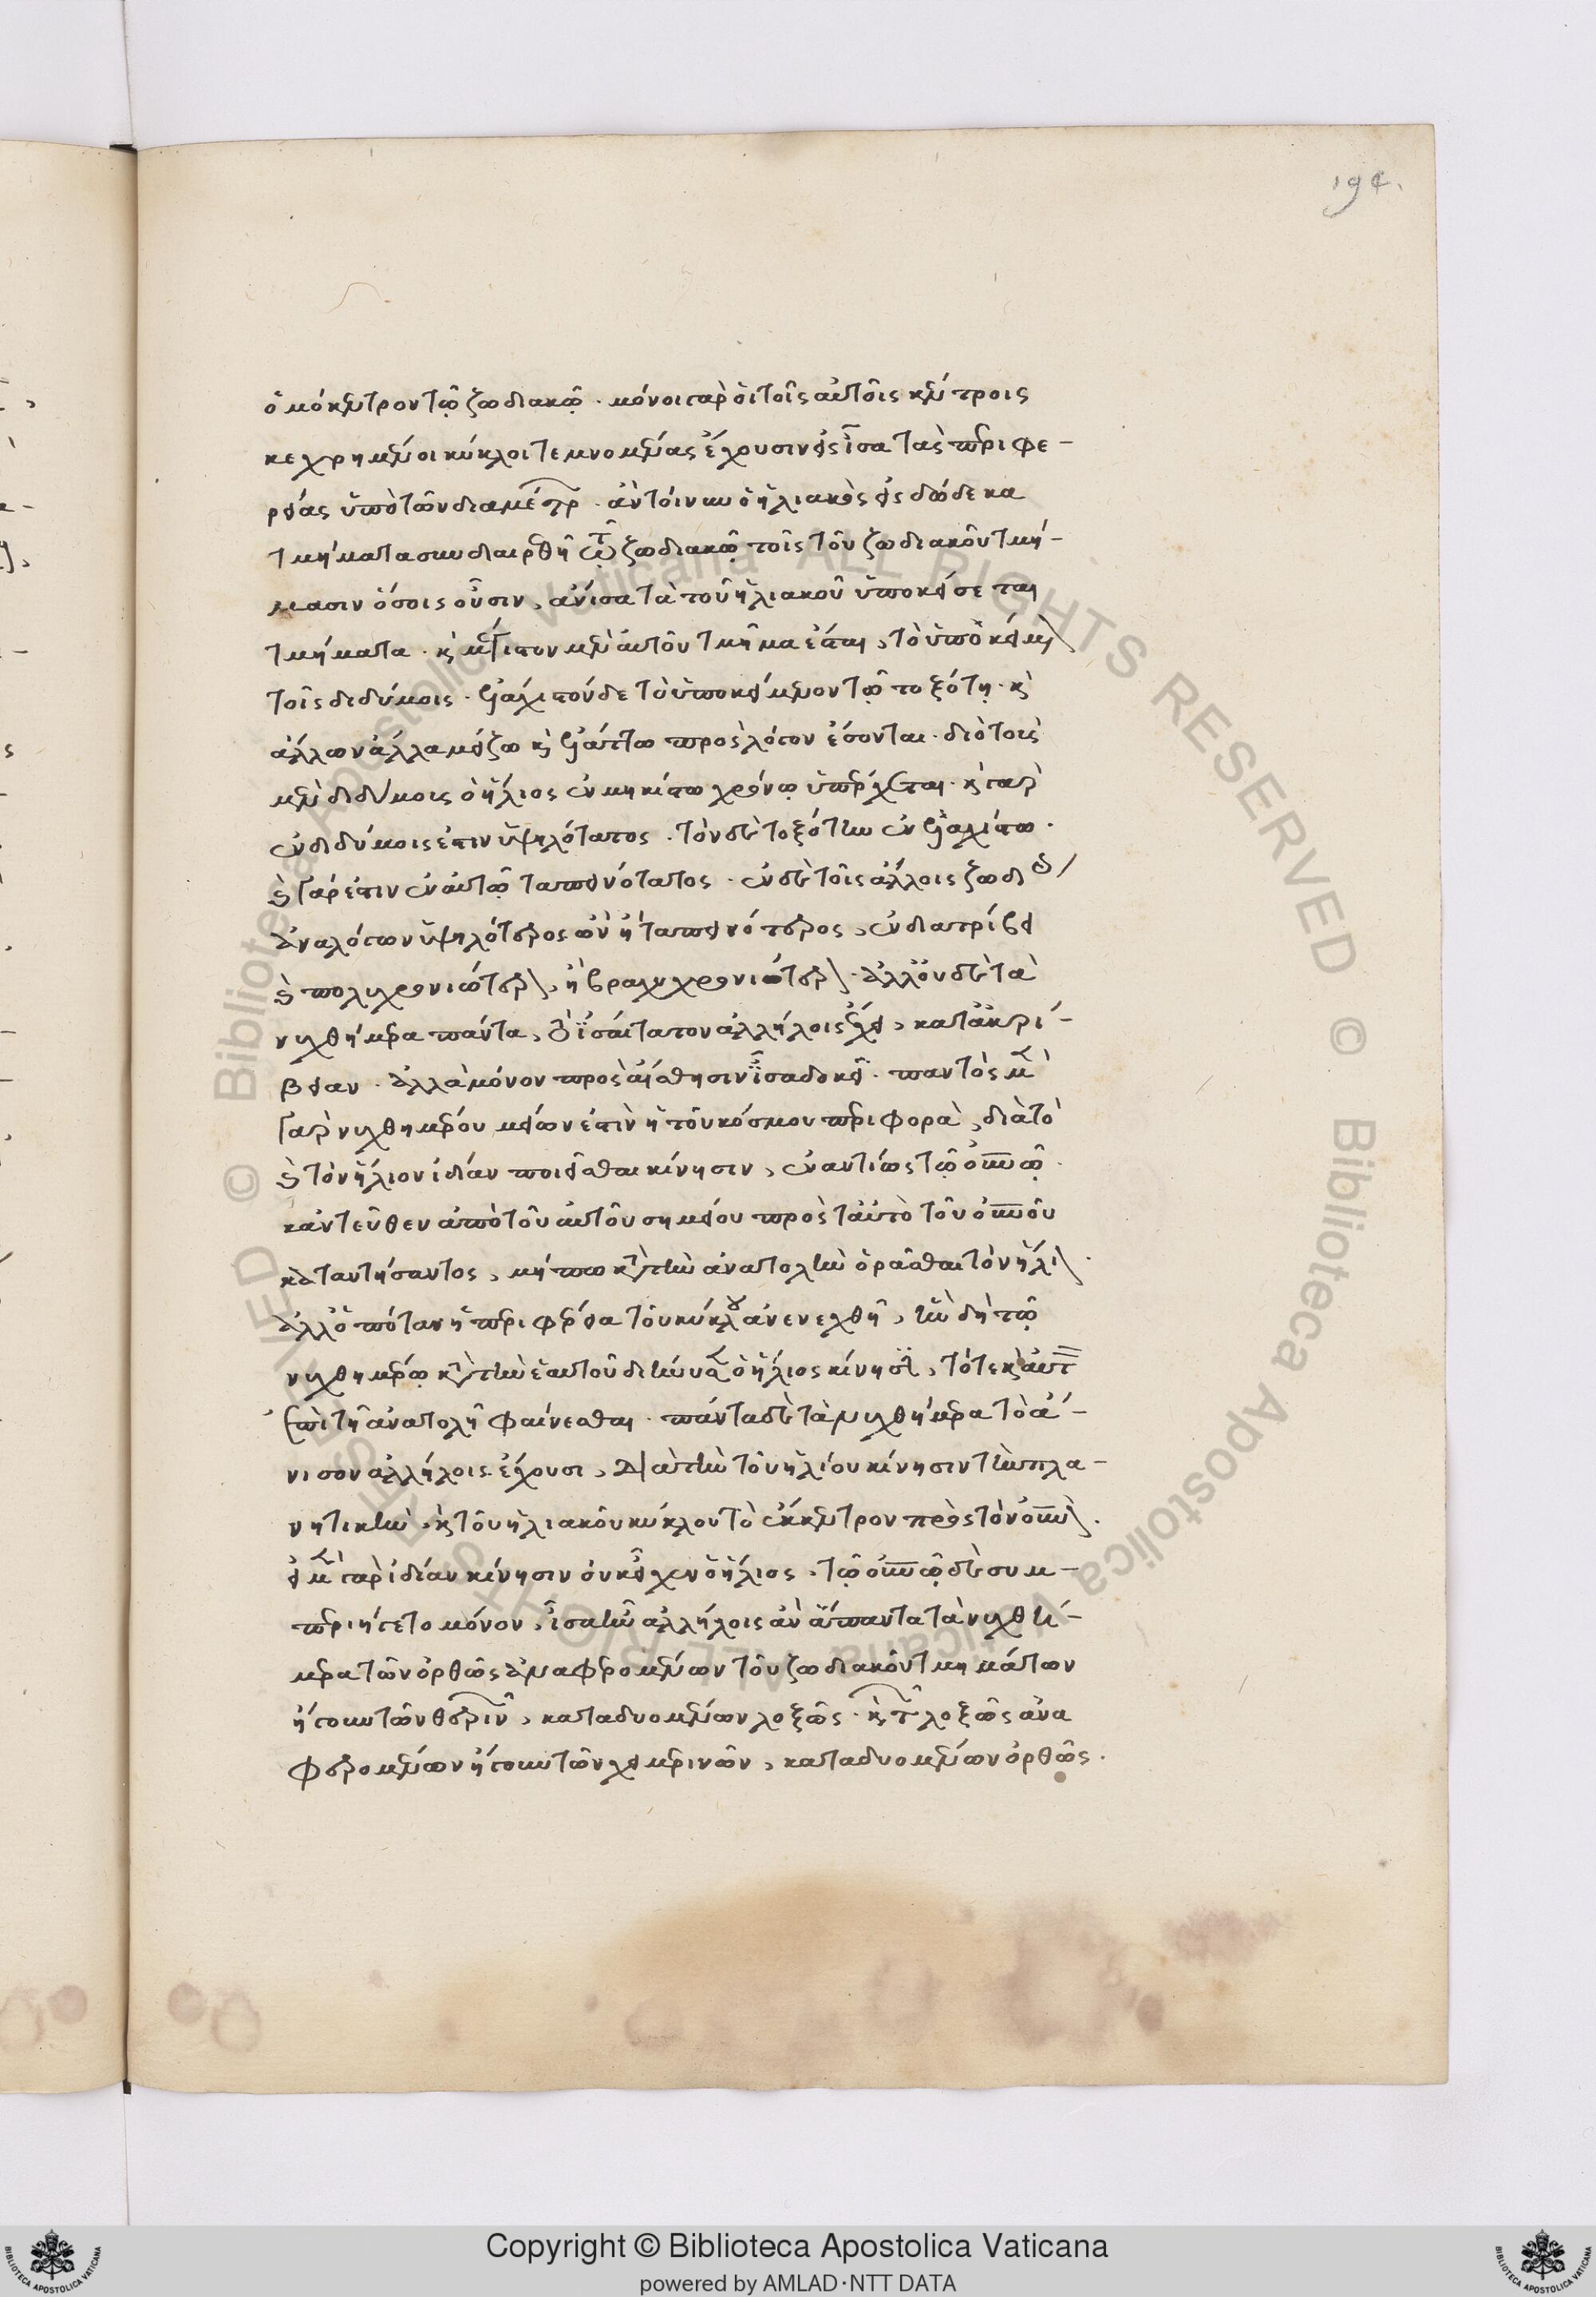 194.
ὁμόκεντρον τῷ ζωδιακῷ. μόνοι γὰρ οἱ τοῖς αὐτοῖς κέντροις
κεχρημένοι κύκλοι τεμνομένας ἔχουσιν εἰς ἴσα τὰς περιφε-
ρείας ὑπὸ τῶν διαμέτρ. ἂν τοίνυν ὁ ἡλιακὸς εἰς δώδεκα
τμήματα συνδιαιρεθῇ τῷ ζωδιακῷ τοῖς τοῦ ζωδιακοῦ τμή-
μασιν ὅσοις οὖσιν, ἄνισα τὰ τοῦ ἡλιακοῦ ὑποκείσεται
τμήματα. κ μέγιστον μὲν αὐτοῦ τμῆμα ἔσται, τὸ ὑποκείμ
τοῖς διδύμοις. ἐλάχιστον δὲ τὸ ὑποκείμενον τῷ τοξότῃ. κ
ἄλλων ἄλλα μείζω κ ἐλάττω πρὸς λόγον ἔσονται. διὸ τοὺς
μὲν διδύμους ὁ ἥλιος ἐν μηκίστω χρόνω ὑπέρχεται. κ γὰρ
ἐν διδύμοις ἐστὶν ὑψηλότατος. τὸν δὲ τοξότην ἐν ἐλαχίστω.
κ γάρ ἐστιν ἐν αὐτῷ ταπεινότατος. ἐν δὲ τοῖς ἄλλοις ζωδί
ἀναλόγων ὑψηλότερος ὢν ἢ ταπεινότερος, ἐνδιατρίβει
κ πολυχρονιώτερ, ἢ βραχυχρονιώτερ. ἀλλ' οὐδὲ τὰ
νυχθήμερα πάντα, ἀλλήλοις ἔχει, κατ' ἀκρί-
βειαν. ἀλλὰ μόνον πρὸς αἴσθησιν ἴσα δοκεῖ. παντὸς μὲν
γὰρ νυχθημέρου μείων ἐστὶν ἡ τοῦ κόσμου περιφορὰ, διὰ τὸ
κ τὸν ἥλιον ἰδίαν ποιεῖσθαι κίνησιν, ἐναντίως τῷ οὐνῷ.
κἀντεῦθεν ἀπὸ τοῦ αὐτοῦ σημείου πρὸς ταὐτὸ τοῦ οὐνοῦ
καταντήσαντος, μήπω κατὰ τὴν ἀνατολὴν ὁρᾶσθαι τὸν ἥλι.
ἀλλ' ὁπόταν ἡ περιφέρεια τοῦ κύκλου ἀνενεχθῇ, ἣν δὴ τῷ
νυχθημέρῳ κατὰ τὴν ἑαυτοῦ διήνυσ ὁ ἥλιος κίνησ, τότε κ αὐτ
ἐπὶ τῇ ἀνατολῇ φαίνεσθαι. πάντα δὲ τὰ νυχθήμερα τὸ ἄ-
νισον ἀλλήλοις ἔχουσι, διὰ τὴν τοῦ ἡλίου κίνησιν τὴν πλα-
νητικὴν. κ τοῦ ἡλιακοῦ κύκλου τὸ ἔκκεντρον πρὸς τὸν οὐνὸ.
εἰ μὲν γὰρ ἰδίαν κίνησιν οὐκ εἶχεν ὁ ἥλιος, τῷ οὐνῷ δὲ συμ-
περιήγετο μόνον, ἴσα ἦν ἀλλήλοις ἂν ἅπαντα τὰ νυχθή-
μερα τῶν ὀρθῶς ἀναφερομένων τοῦ ζωδιακοῦ τμημάτων
ἤγουν τῶν θεριν, καταδυομένων λοξῶς. κ τῶν λοξῶς ἀνα
φερομένων ἤγουν τῶν χειμερινῶν, καταδυομένων ὀρθῶς.
Copyright © Biblioteca Apostolica Vaticana
powered by AMLAD·NTT DATA
© Biblioteca Apostolica Vaticana ALL RIGHTS RESERVED © Biblioteca Apostolica Vaticana ALL RIGHTS RESERVED